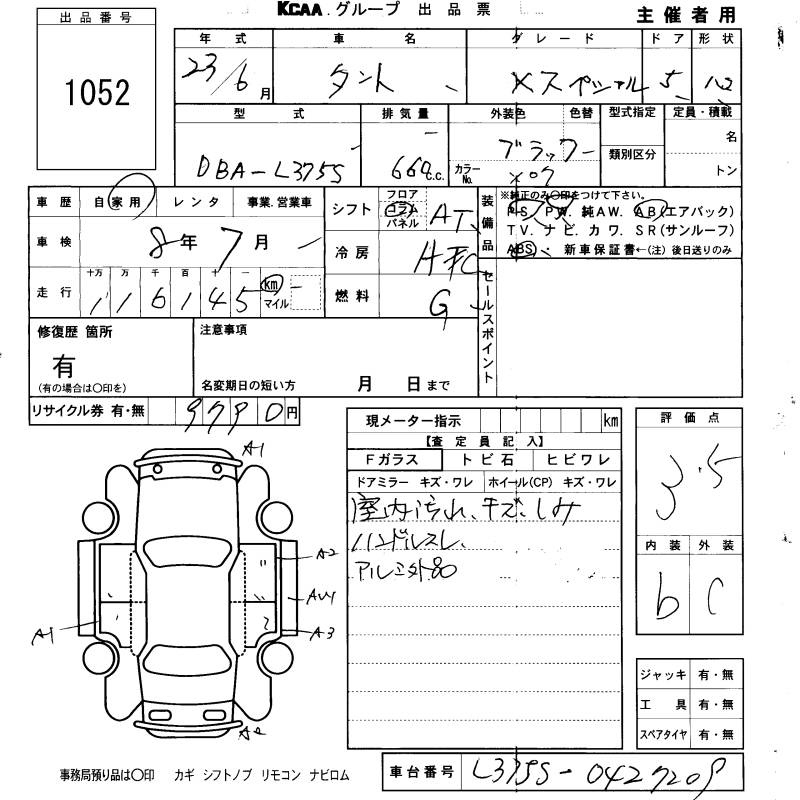 KCAA.グループ 出品票
主催者用
出品番号
1052
年式 車名 グレード ドア 形状
23/6月 タント Xスペシャル 5 ハコ
型式 排気量 外装色 色替 型式指定 定員・積載
類別区分
名
トン
DBA-L375S 660c.c. ブラック
カラーNo. X07
車歴 自家用 レンタ 事業.営業車
車検 8年7月
走行 十万 万 千 百 十 一
116145 km マイル
シフト フロア コラム パネル AT
冷房
燃料 G
装備品
※純正のみ〇印をつけて下さい。
PS. PW. 純AW. AB(エアバック)
TV. ナビ. カワ. SR(サンルーフ)
ABS・ 新車保証書←(注)後日送りのみ
セールスポイント
修復歴 箇所
有
(有の場合は〇印を)
注意事項
名変期日の短い方 月 日まで
リサイクル券 有・無 9790円
現メーター指示 km
【査定員記入】
Fガラス トビ石 ヒビワレ
ドアミラー キズ・ワレ ホイール(CP) キズ・ワレ
室内汚れ、キズ、しみ
ハンドルスレ、
アルミ外80
評価点
3.5
内装 外装
b C
A1
A2
AW1
A3
A1
A2
ジャッキ 有・無
工具 有・無
スペアタイヤ 有・無
事務局預り品は〇印 カギ シフトノブ リモコン ナビロム
車台番号 L375S-0427209